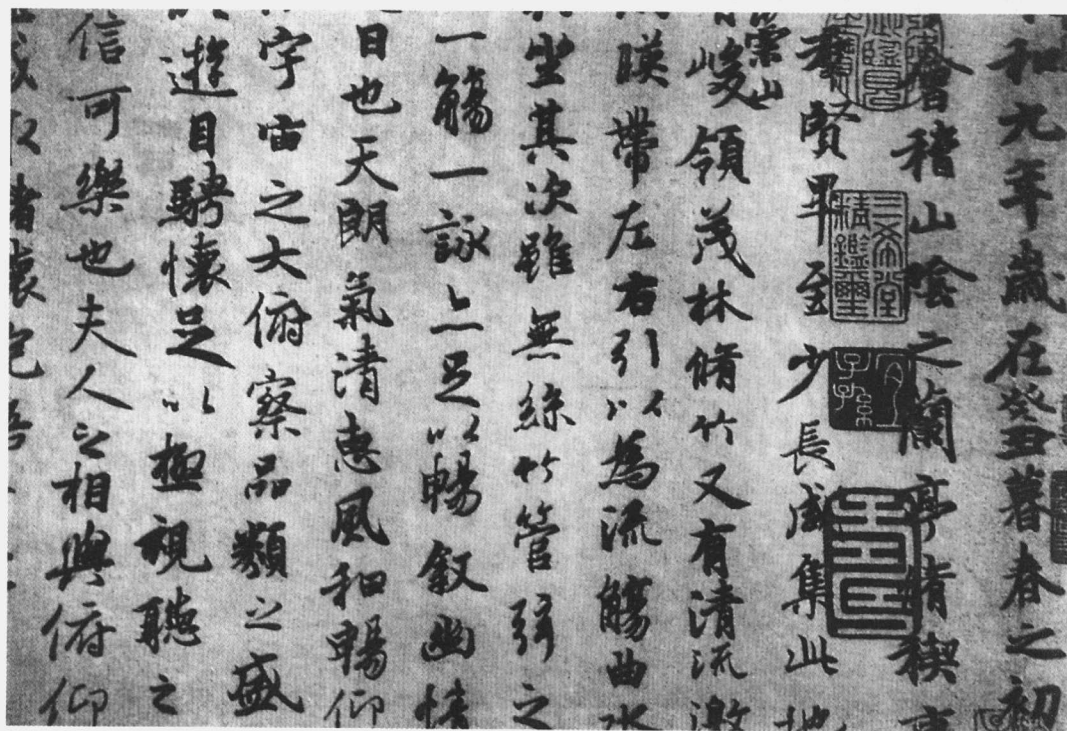 和九年歲在癸丑暮春之初
會稽山陰之蘭亭脩禊事
羣賢畢至少長咸集此地
崇山
有峻領茂林脩竹又有清流激
暎帶左右引以為流觴曲水
列坐其次雖無絲竹管弦之
一觴一詠亦足以暢敘幽情
日也天朗氣清惠風和暢仰
宇宙之大俯察品類之盛
遊目騁懷足以極視聽之
信可樂也夫人之相與俯仰
或取諸懷抱悟
三希堂精鑑璽
宜子孫